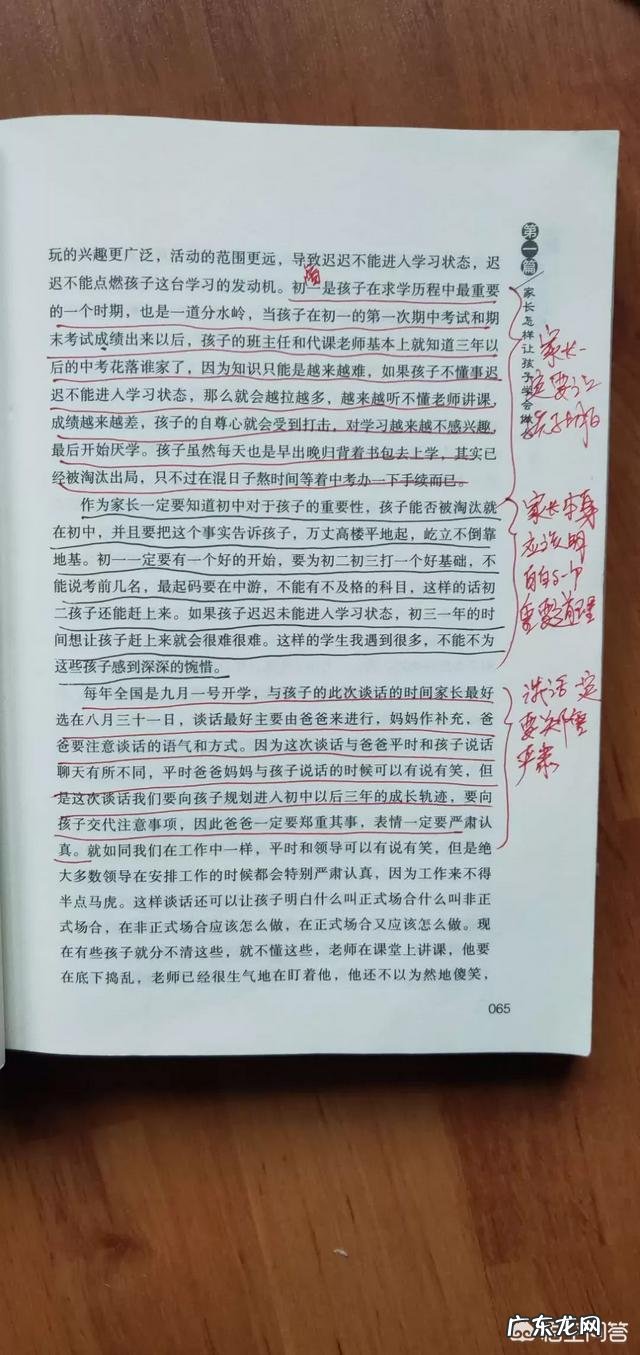 玩的兴趣更广泛，活动的范围更远，导致迟迟不能进入学习状态，迟
迟不能点燃孩子这台学习的发动机。初一是孩子在求学历程中最重要
的一个时期，也是一道分水岭，当孩子在初一的第一次期中考试和期
末考试成绩出来以后，孩子的班主任和代课老师基本上就知道三年以
后的中考花落谁家了，因为知识只能是越来越难，如果孩子不懂事迟
迟不能进入学习状态，那么就会越拉越多，越来越听不懂老师讲课，
成绩越来越差，孩子的自尊心就会受到打击，对学习越来越不感兴趣，
最后开始厌学。孩子虽然每天也是早出晚归背着书包去上学，其实已
经被淘汰出局，只不过在混日子熬时间等着中考办一下手续而已。
作为家长一定要知道初中对于孩子的重要性，孩子能否被淘汰就
在初中，并且要把这个事实告诉孩子，万丈高楼平地起，屹立不倒靠
地基。初一一定要有一个好的开始，要为初二初三打一个好基础，不
能说考前几名，最起码要在中游，不能有不及格的科目，这样的话初
二孩子还能赶上来。如果孩子迟迟未能进入学习状态，初三一年的时
间想让孩子赶上来就会很难很难。这样的学生我遇到很多，不能不为
这些孩子感到深深的惋惜。
每年全国是九月一号开学，与孩子的此次谈话的时间家长最好
选在八月三十一日，谈话最好主要由爸爸来进行，妈妈作补充，爸
爸要注意谈话的语气和方式。因为这次谈话与爸爸平时和孩子说话
聊天有所不同，平时爸爸妈妈与孩子说话的时候可以有说有笑，但
是这次谈话我们要向孩子规划进入初中以后三年的成长轨迹，要向
孩子交代注意事项，因此爸爸一定要郑重其事，表情一定要严肃认
真。就如同我们在工作中一样，平时和领导可以有说有笑，但是绝
大多数领导在安排工作的时候都会特别严肃认真，因为工作来不得
半点马虎。这样谈话还可以让孩子明白什么叫正式场合什么叫非正
式场合，在非正式场合应该怎么做，在正式场合又应该怎么做。现
在有些孩子就分不清这些，就不懂这些，老师在课堂上讲课，他要
在底下捣乱，老师已经很生气地在盯着他，他还不以为然地傻笑，
065
第一篇
家长怎样让孩子学会做
家长一
定要让
孩子明白
家长本身
应该明
白
重要道理
谈话一定
要
严肃
悟空问答
广东龙网